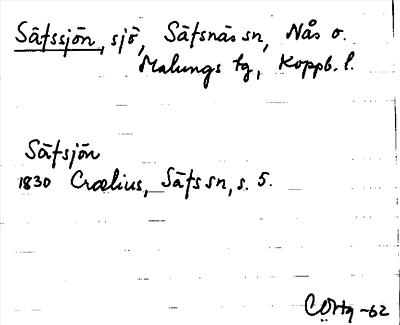 Säfssjön, sjö, Säfsnäs sn, Nås o.
Malungs tg, Koppb. l.
Säfsjön
1830 Crælius, Säfs sn, s. 5.